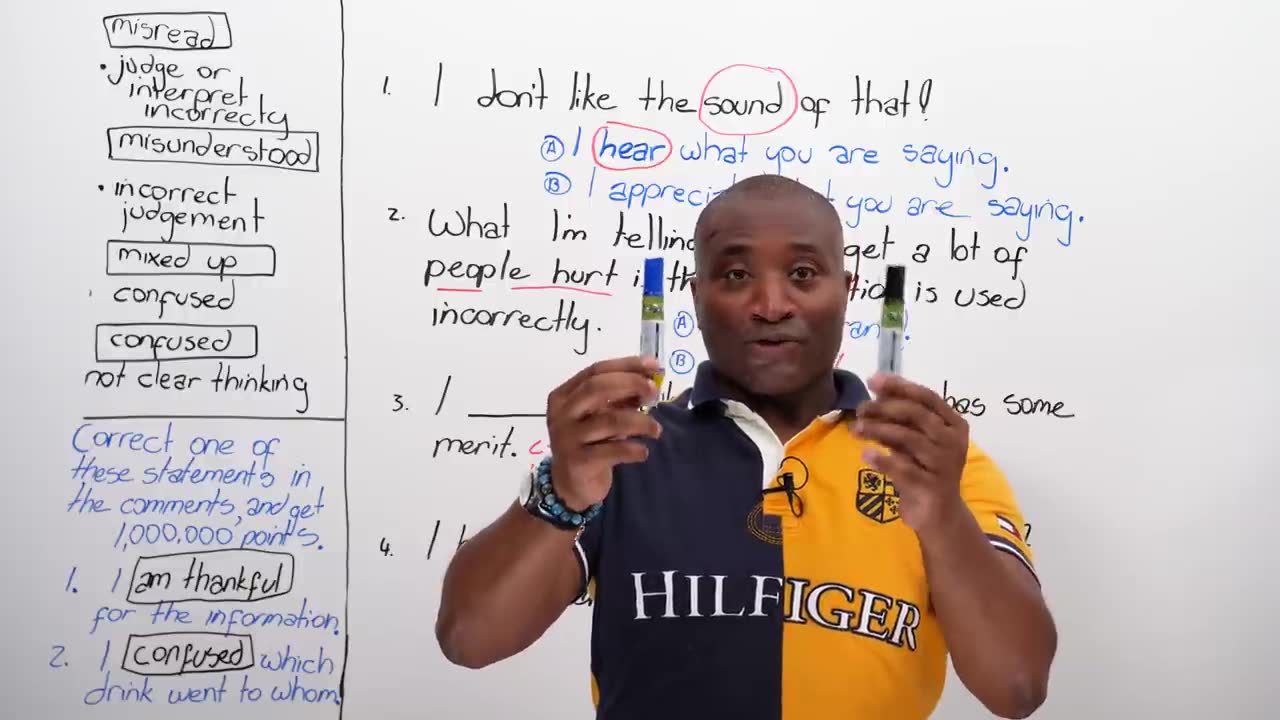 misread
• judge or
interpret
incorrectly
misunderstood
• incorrect
judgement
mixed up
confused
confused
not clear thinking
Correct one of
these statements in
the comments, and get
1,000,000 points.
1. I am thankful
for the information.
2. I confused which
drink went to whom.
1. I don't like the sound of that!
A I hear what you are saying.
B I you are saying.
2. What I'm get a lot of
people hurt is used
incorrectly.
A
B
3. I ____ has some
merit.
4. I
HILFIGER